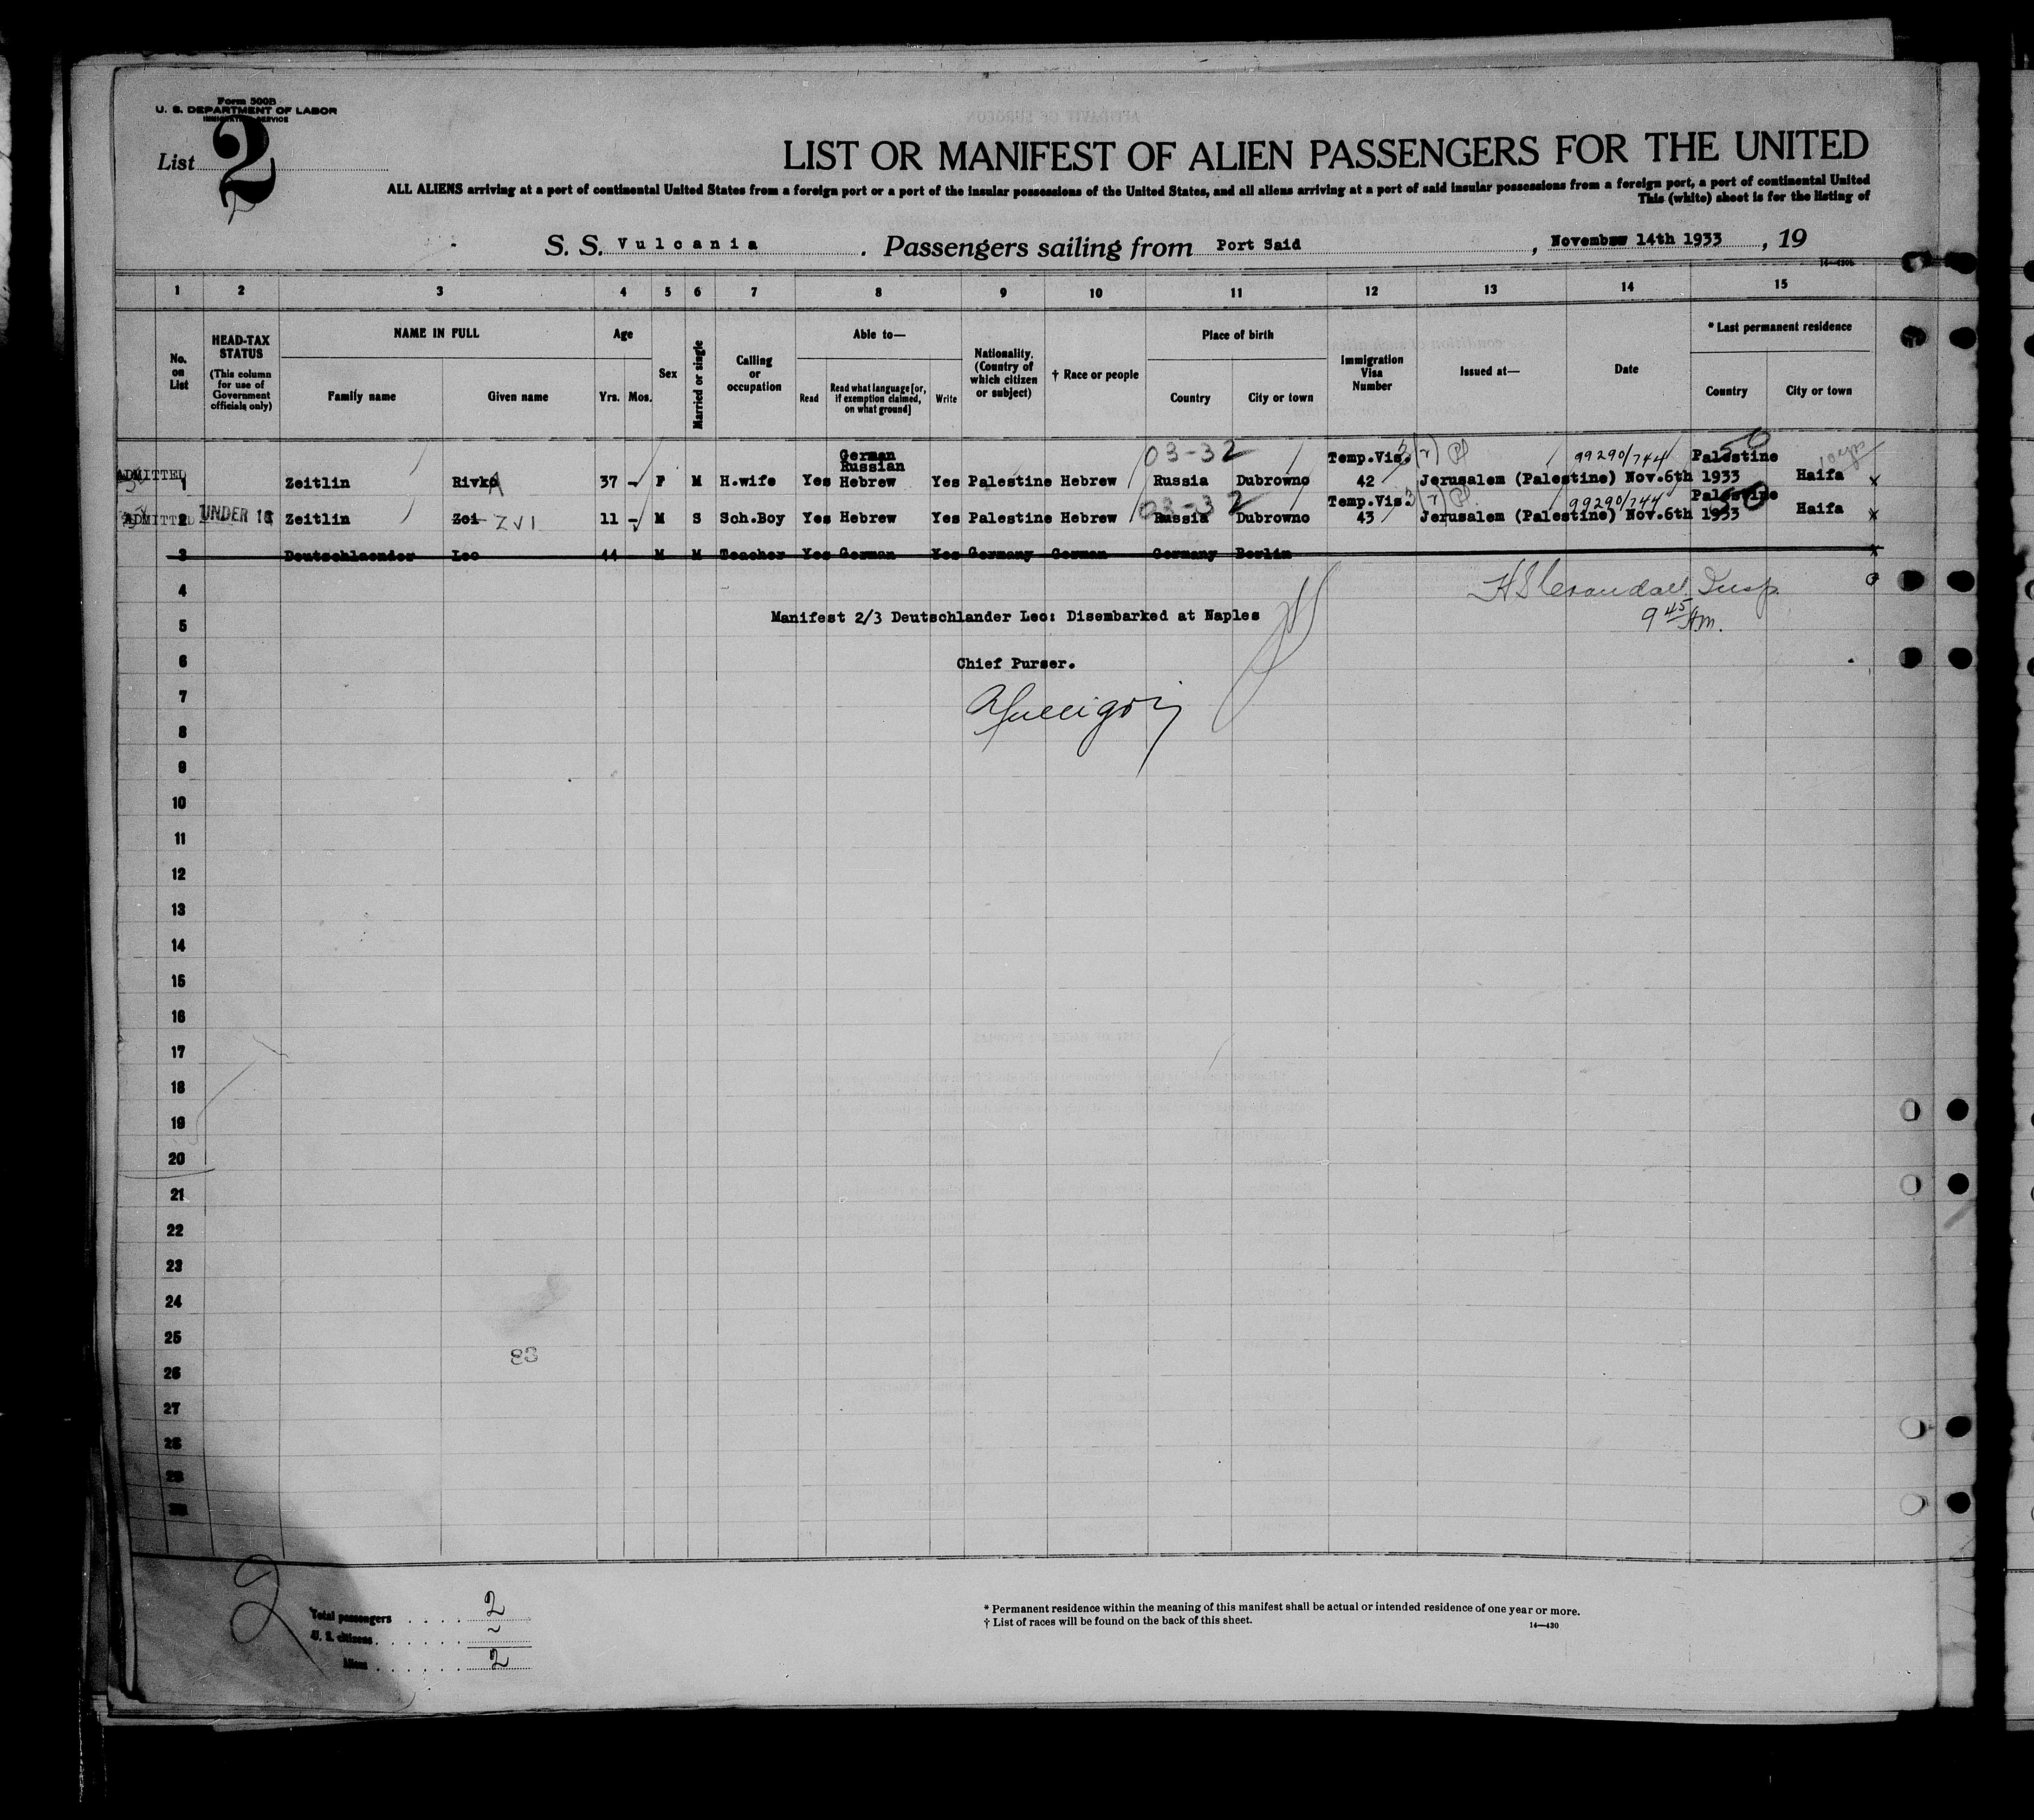 Form 500B
U. S. DEPARTMENT OF LABOR
IMMIGRATION SERVICE
List 2
LIST OR MANIFEST OF ALIEN PASSENGERS FOR THE UNITED
ALL ALIENS arriving at a port of continental United States from a foreign port or a port of the insular possessions of the United States, and all aliens arriving at a port of said insular possessions from a foreign port, a port of continental United
This (white) sheet is for the listing of
S. S. Vulcania . Passengers sailing from Port Said , November 14th 1933 , 19
14—430b
1 2 3 4 5 6 7 8 9 10 11 12 13 14 15
No. on List
HEAD-TAX STATUS (This column for use of Government officials only)
NAME IN FULL
Family name Given name
Age
Yrs. Mos.
Sex
Married or single
Calling or occupation
Able to—
Read Read what language [or, if exemption claimed, on what ground] Write
Nationality. (Country of which citizen or subject)
† Race or people
Place of birth
Country City or town
Immigration Visa Number
Issued at—
Date
* Last permanent residence
Country City or town
03-32
German Russian Temp.Vis. 99290/744 Palestine
ADMITTED 1 Zeitlin Rivka 37 - F M H.wife Yes Hebrew Yes Palestine Hebrew Russia Dubrowno 42 Jerusalem (Palestine) Nov.6th 1933 Haifa x
03-32 Temp.Vis. 99290/744 Palestine
ADMITTED 2 UNDER 16 Zeitlin Zei ZVI 11 - M S Sch.Boy Yes Hebrew Yes Palestine Hebrew Russia Dubrowno 43 Jerusalem (Palestine) Nov.6th 1933 Haifa x
3 Deutschlaender Leo 44 M M Teacher Yes German Yes Germany German Germany Berlin x
4
9 45 Am.
5 Manifest 2/3 Deutschlander Leo: Disembarked at Naples
6 Chief Purser.
7
8
9
10
11
12
13
14
15
16
17
18
19
20
21
22
23
24
25
83
26
27
28
29
30
2
Total passengers 2
U. S. citizens ~
Aliens 2
* Permanent residence within the meaning of this manifest shall be actual or intended residence of one year or more.
† List of races will be found on the back of this sheet.
14—430